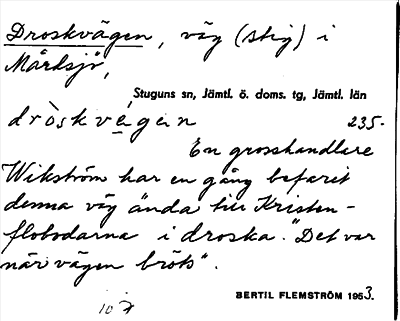 Droskvägen, väg (stig) i
Mårdsjö,
Stuguns sn, Jämtl. ö. doms. tg, Jämtl. län
dròskvé̱gɛn 235.
En grosshandlare
Wikström har en gång befarit
denna väg ända till Kristen-
flobodarna i droska. "Det var
när vägen bröts".
BERTIL FLEMSTRÖM 1953.